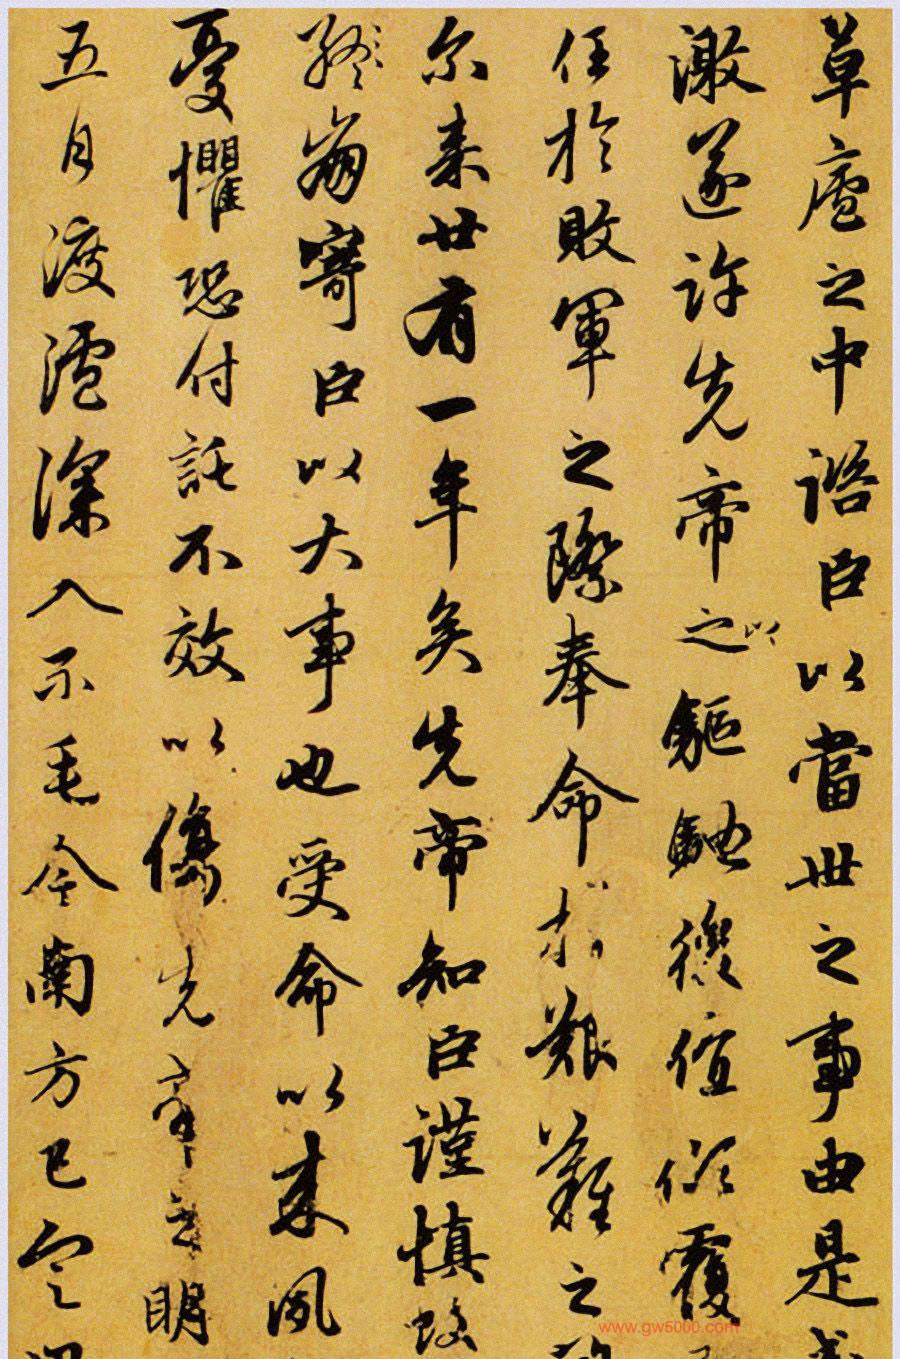 草廬之中諮臣以當世之事由是
激遂許先帝之以驅馳後值傾覆
任於敗軍之際奉命於艱難之
尔来廿有一年矣先帝知臣謹慎故
臨崩寄臣以大事也受命以来夙
憂懼恐付託不效以傷先帝之明
五月渡瀘深入不毛今南方已定
www.gw5000.com